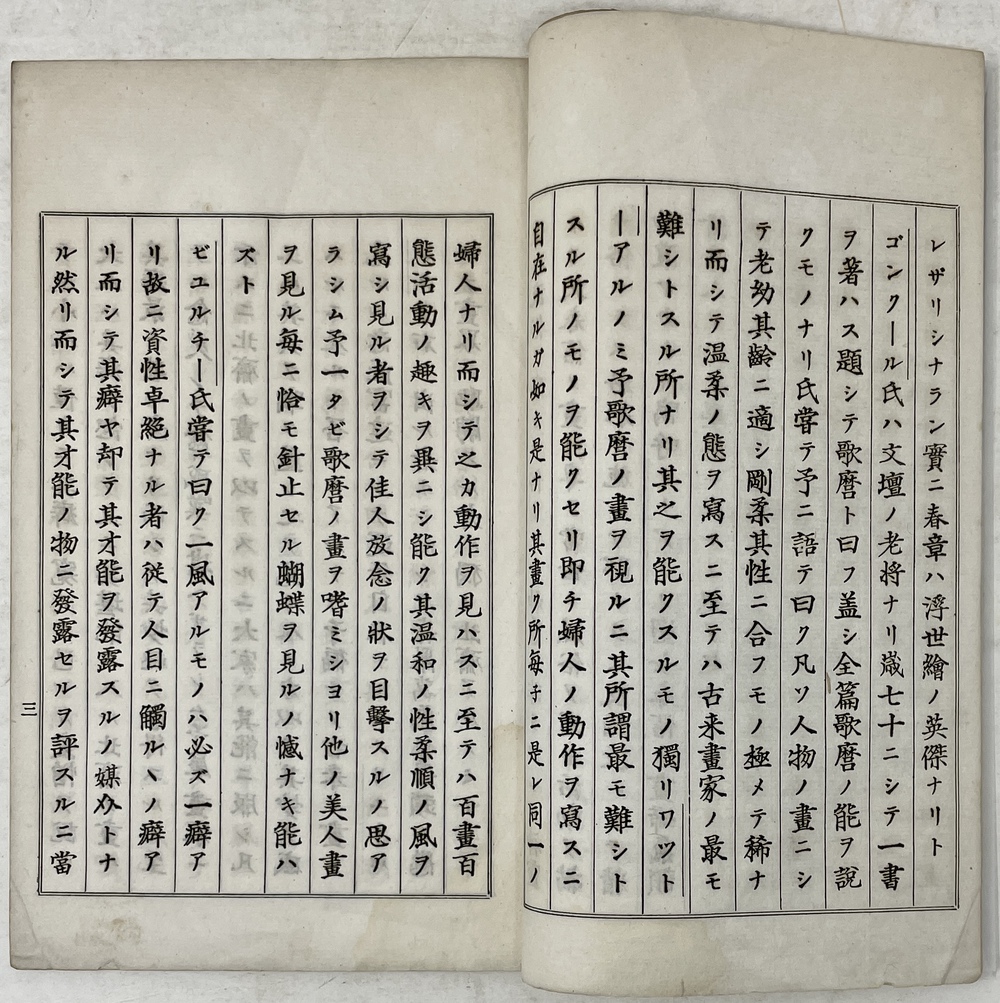 レザリシナラン實ニ春章ハ浮世繪ノ英傑ナリト
ゴンクール氏ハ文壇ノ老将ナリ歳七十ニシテ一書
ヲ著ハス題シテ歌麿ト曰フ盖シ全篇歌麿ノ能ヲ說
クモノナリ氏甞テ予ニ語テ曰ク凡ソ人物ノ畫ニシ
テ老幼其齡ニ適シ剛柔其性ニ合フモノ極メテ稀ナ
リ而シテ温柔ノ態ヲ寫スニ至テハ古来畫家ノ最モ
難シトスル所ナリ其之ヲ能クスルモノ獨リワツト
ーアルノミ予歌麿ノ畫ヲ視ルニ其所謂最モ難シト
スル所ノモノヲ能クセリ即チ婦人ノ動作ヲ寫スニ
自在ナルガ如キ是ナリ其畫ク所每子ニ是レ同一ノ
婦人ナリ而シテ之カ動作ヲ見ハスニ至テハ百畫百
態活動ノ趣キヲ異ニシ能ク其温和ノ性柔順ノ風ヲ
寫シ見ル者ヲシテ佳人放念ノ狀ヲ目擊スルノ思ア
ラシム予一タビ歌麿ノ畫ヲ嗜ミショリ他ノ美人畫
ヲ見ル每ニ恰モ針止セル蝴蝶ヲ見ルノ憾ナキ能ハ
ズト
ゼユルチー氏甞テ曰ク一風アルモノハ必ズ一癖ア
リ故ニ資性卓絕ナル者ハ従テ人目ニ觸ルヽノ癖ア
リ而シテ其癖ヤ却テ其才能ヲ發露スルノ媒介トナ
ル然リ而シテ其才能ノ物ニ發露セルヲ評スルニ當
三